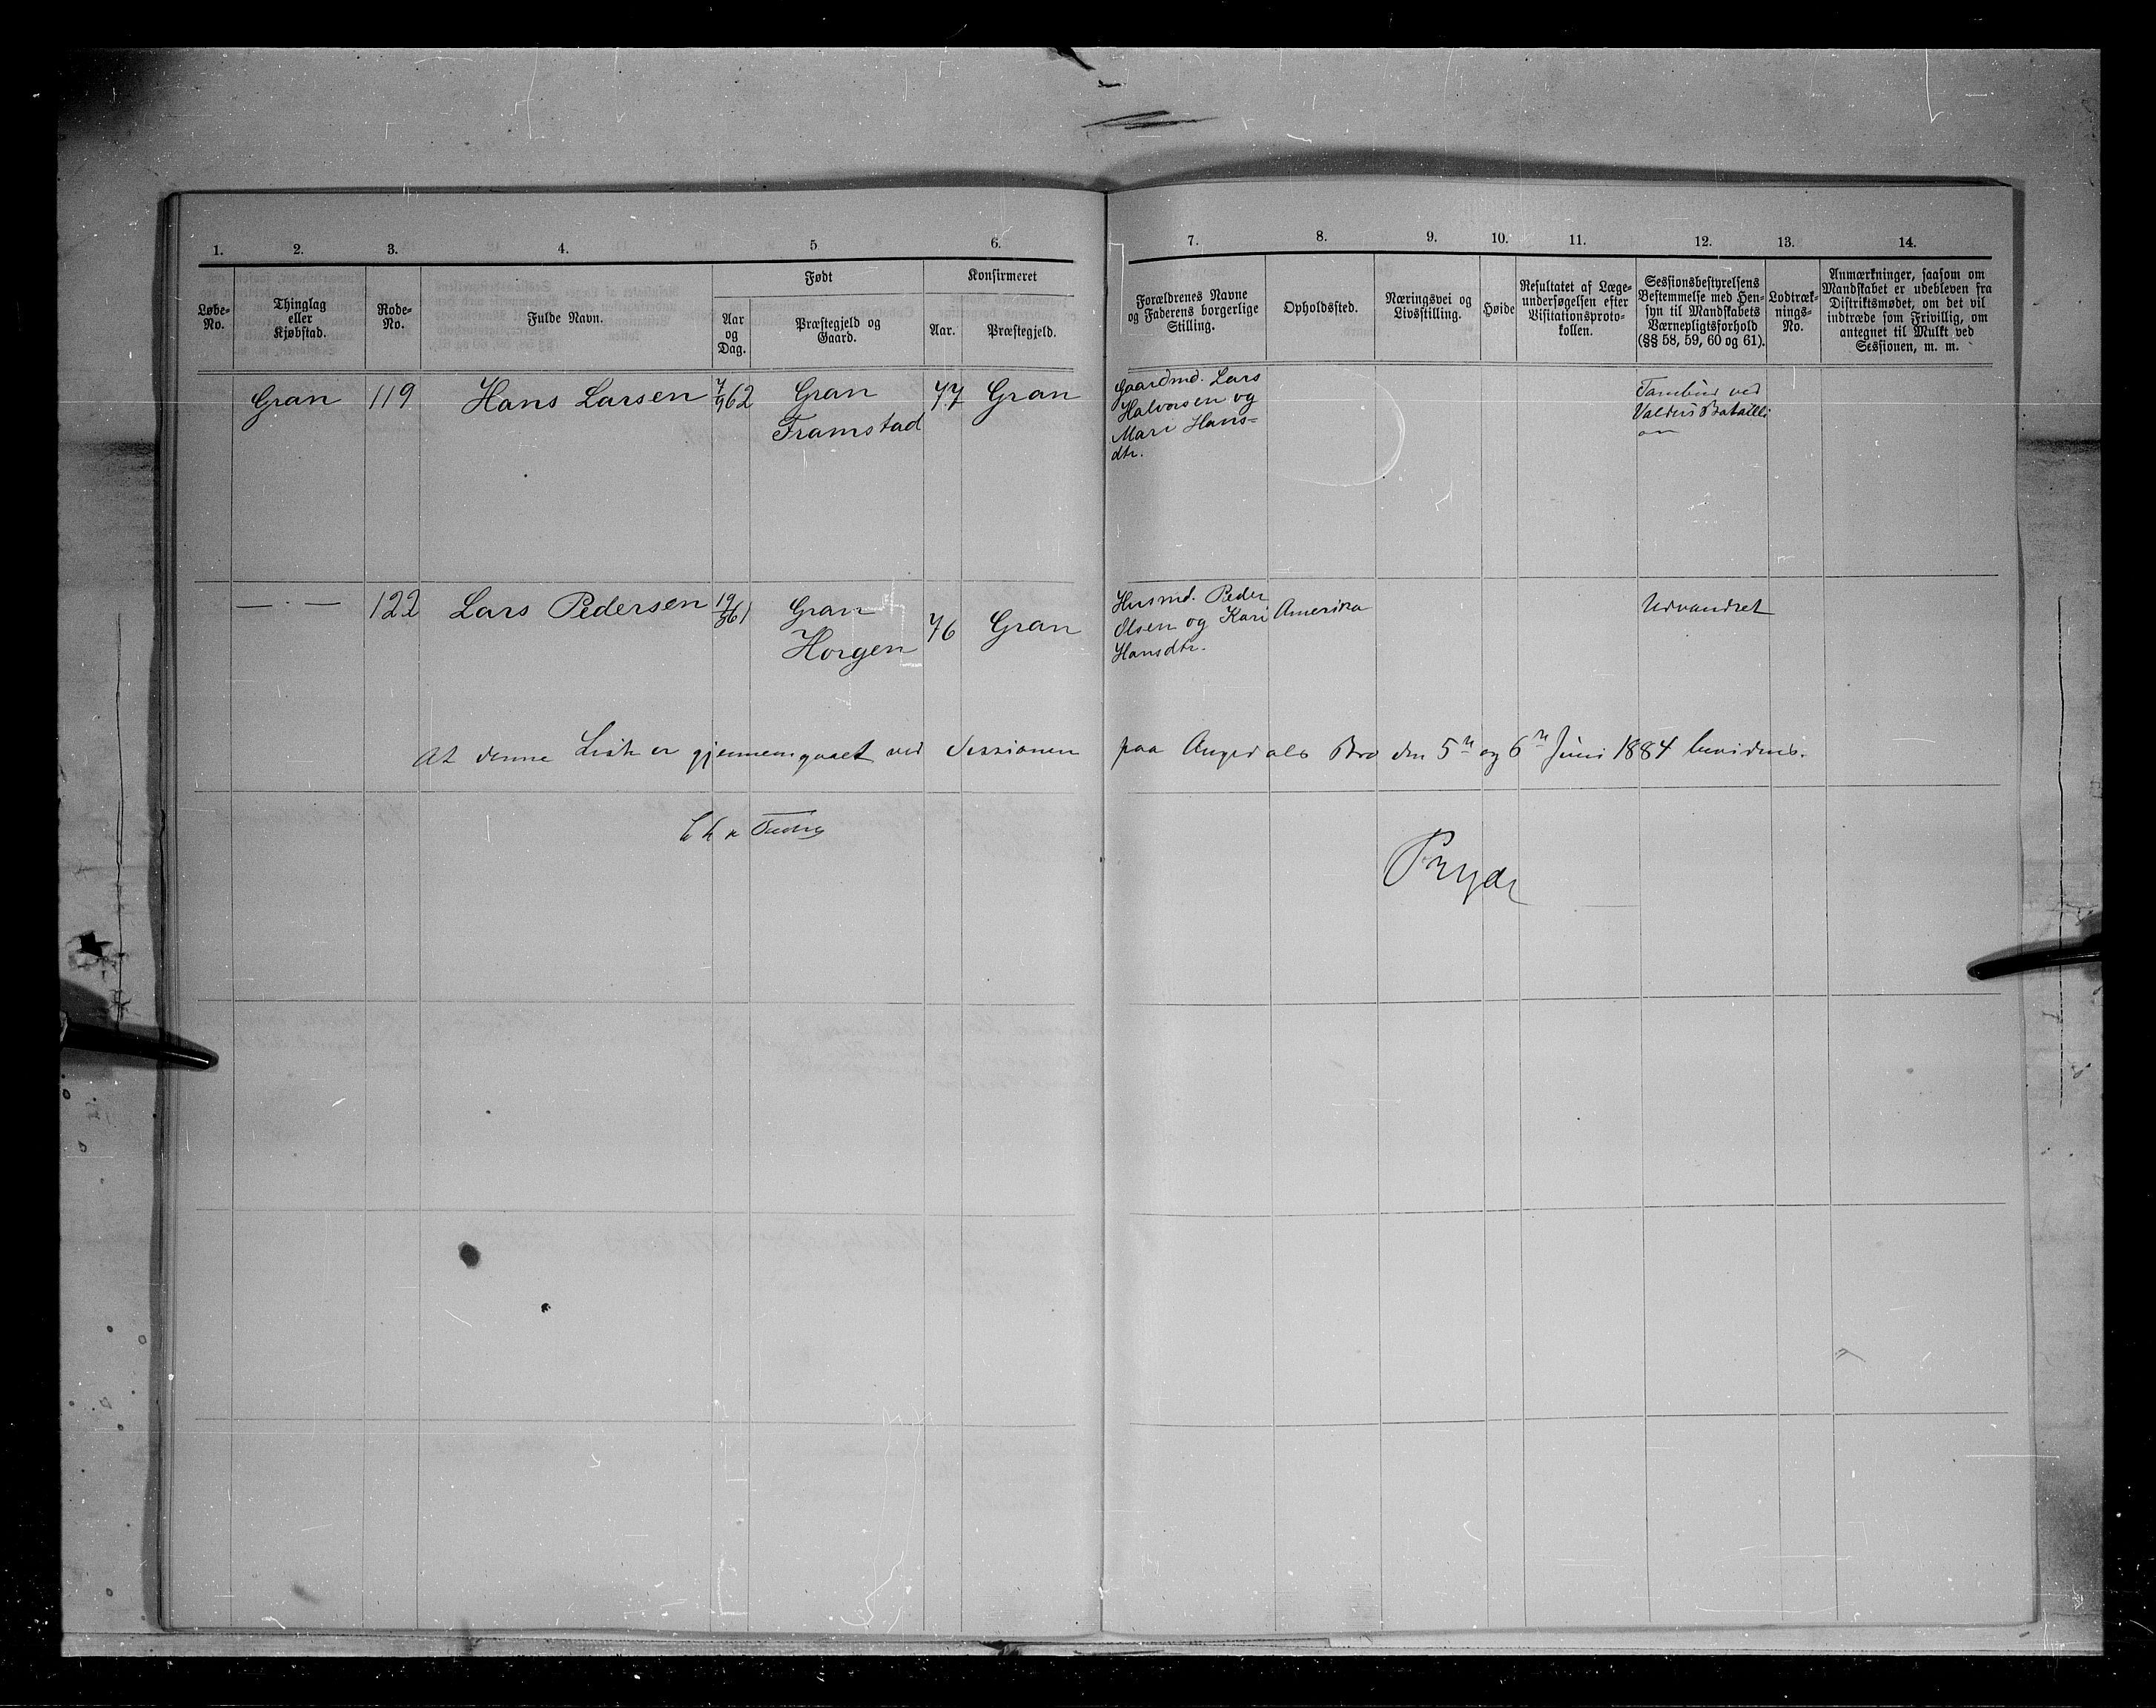 1. 2. 3. 4. 5 6.
Løbe-
No.
Thinglag
eller
Kjøbstad.
Rode-
No.
Fulde Navn.
Født
Aar
og
Dag.
Præstegjeld og
Gaard.
Konfirmeret
Aar.
Præstegjeld.
Gran 119 Hans Larsen 7/9 62 Gran 77 Gran
Framstad
— · — 122 Lars Pedersen 19/ 61 Gran 76 Gran
Horgen
7. 8. 9. 10. 11. 12. 13. 14.
Forældrenes Navne
og Faderens borgerlige
Stilling.
Opholdssted.
Næringsvei og
Livsstilling.
Høide
Resultatet af Læge-
undersøgelsen efter
Visitationsproto-
kollen.
Sessionsbestyrelsens
Bestemmelse med Hen-
syn til Mandskabets
Værnepligtsforhold
(§§ 58, 59, 60 og 61).
Lodtræk-
nings-
No.
Anmærkninger, saasom om
Mandskabet er udebleven fra
Distriktsmødet, om det vil
indtræde som Frivillig, om
antegnet til Mulkt ved
Sessionen, m. m.
Gaardmd. Lars
Halvorsen og
Mari Hans-
dtr.
Tambur ved
Valders Batailli
on
Husmd. Peder
Olsen og Kari
Hansdtr.
Amerika
Udvandret
At denne Liste er gjennemgaaet ved Sessionen paa Augedals Bro den 5te og 6te Juni 1884 bevidnes.
Bryde